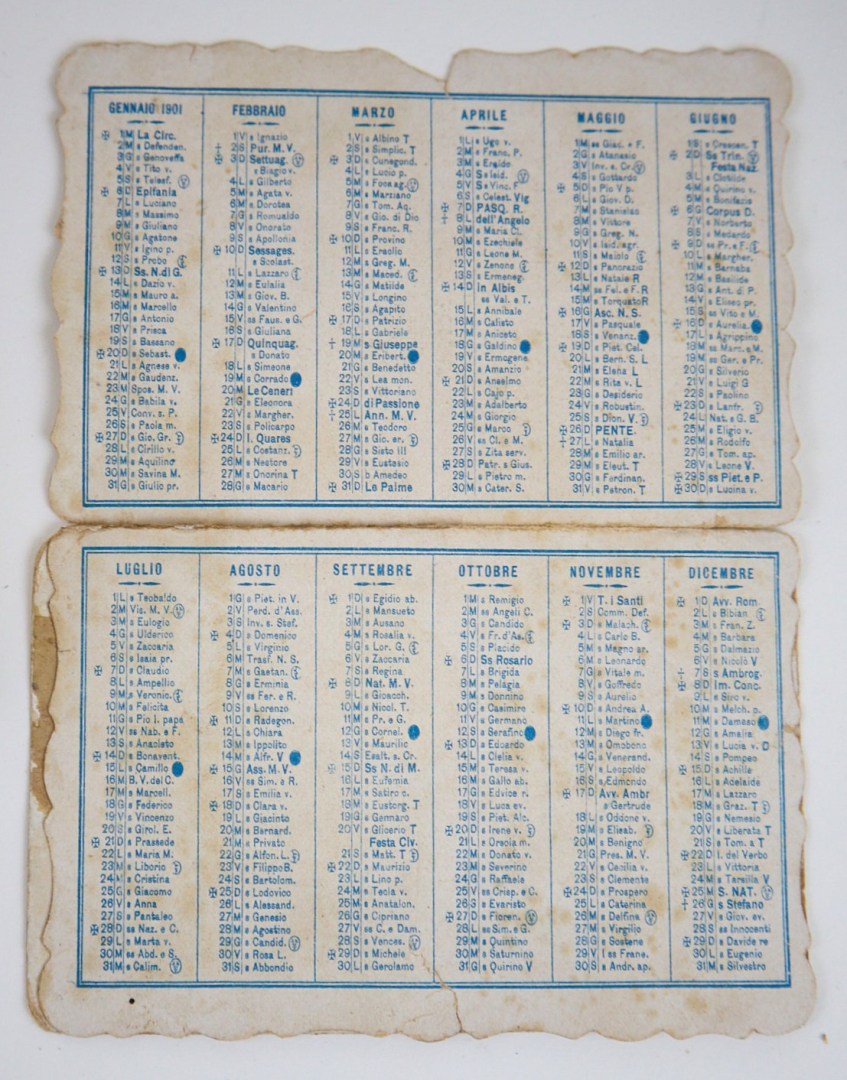 GENNAIO 1901
✠ 1 M La Circ.
2 M s Defenden.
3 G s Genoveffa
4 V s Tito v.
5 S s Telesf.
✠ 6 D Epifania
7 L s Luciano
8 M s Massimo
9 M s Giuliano
10 G s Agatone
11 V s Igino p.
12 S s Probo
✠ 13 D Ss. N. di G.
14 L s Dazio v.
15 M s Mauro a.
16 M s Marcello
17 G s Antonio
18 V s Prisca
19 S s Bassano
✠ 20 D s Sebast.
21 L s Agnese v.
22 M s Gaudenz.
23 M Spos. M. V.
24 G s Babila v.
25 V Conv. s. P.
26 S s Paola m.
✠ 27 D s Gio. Gr.
28 L s Cirillo v.
29 M s Aquilino
30 M s Savina M.
31 G s Giulio pr.
FEBBRAIO
1 V s Ignazio
† 2 S Pur. M. V.
✠ 3 D Settuag.
s Biagio v.
4 L s Gilberto
5 M s Agata v.
6 M s Dorotea
7 G s Romualdo
8 V s Onorato
9 S s Apollonia
✠ 10 D Sessages.
s Scolast.
11 L s Lazzaro
12 M s Eulalia
13 M s Giov. B.
14 G s Valentino
15 V ss Faus. e G.
16 S s Giuliana
✠ 17 D Quinquag.
s Donato
18 L s Simeone
19 M s Corrado
20 M Le Ceneri
21 G s Eleonora
22 V s Margher.
23 S s Policarpo
✠ 24 D I. Quares
25 L s Costanz.
26 M s Nestore
27 M s Onorina T
28 G s Macario
MARZO
1 V s Albino T
2 S s Simplic. T
✠ 3 D s Cunegond.
4 L s Lucio p.
5 M s Foca ag.
6 M s Marziano
7 G s Tom. Aq.
8 V s Gio. di Dio
9 S s Franc. R.
✠ 10 D s Provino
11 L s Eraclio
12 M s Greg. M.
13 M s Maced.
14 G s Matilde
15 V s Longino
16 S s Agapito
✠ 17 D s Patrizio
18 L s Gabriele
† 19 M s Giuseppe
20 M s Eribert.
21 G s Benedetto
22 V s Lea mon.
23 S s Vittoriano
✠ 24 D di Passione
† 25 L Ann. M. V.
26 M s Teodoro
27 M s Gic. er.
28 G s Sisto III
29 V s Eustasio
30 S b Amedeo
✠ 31 D Le Palme
APRILE
1 L s Ugo v.
2 M s Franc. P.
3 M s Eraldo
4 G s Isid.
5 V s Vinc. F
6 S s Celest. Vig
✠ 7 D PASQ. R.
† 8 L dell'Angelo
9 M s Maria Cl.
10 M s Ezechiele
11 G s Leone M.
12 V s Zenone
13 S s Ermeneg.
✠ 14 D In Albis
ss Val. e T.
15 L s Annibale
16 M s Calisto
17 M s Aniceto
18 G s Galdino
19 V s Ermogene
20 S s Amanzio
✠ 21 D s Anselmo
22 L s Cajo p.
23 M s Adalberto
24 M s Giorgio
25 G s Marco
26 V ss Cl. e M.
27 S s Zita serv.
✠ 28 D Patr. s Gius.
29 L s Pietro m.
30 M s Cater. S.
MAGGIO
1 M ss Giac. e F.
2 G s Atanasio
3 V Inv. s Cr.
4 S s Gottardo
✠ 5 D s Pio V p.
6 L s Giov. D.
7 M s Stanislao
8 M s Vittore
9 G s Greg. N.
10 V s Isid. agr.
11 S s Maiolo
✠ 12 D s Pancrazio
13 L s Natale R
14 M ss Fel. e F. R
15 M s Torquato R
✠ 16 G Asc. N. S.
17 V s Pasquale
18 S s Venanz.
✠ 19 D s Piet. Cel.
20 L s Bern. S. L
21 M s Elena L
22 M s Rita v. L
23 G s Desiderio
24 V s Robustin.
25 S s Dion. V.
✠ 26 D PENTE.
† 27 L s Natalia
28 M s Emilio ar.
29 M s Eleut. T
30 G s Ferdinan.
31 V s Petron. T
GIUGNO
1 S s Crescen. T
✠ 2 D Ss Trin.
Festa Naz.
3 L s Clotilde
4 M s Quirino v.
5 M s Bonifazio
✠ 6 G Corpus D.
7 V s Norberto
8 S s Medardo
✠ 9 D ss Pr. e F.
10 L s Margher.
11 M s Barnaba
12 M s Basilide
13 G s Ant. di P.
14 V s Eliseo pr.
15 S ss Vito e M.
✠ 16 D s Aurelia
17 L s Agrippino
18 M ss Marc. e M.
19 M ss Ger. e Pr.
20 G s Silverio
21 V s Luigi G
22 S s Paolino
✠ 23 D s Lanfr.
24 L Nat. s G. B.
25 M s Eligio v.
26 M s Rodolfo
27 G s Tom. ap.
28 V s Leone V.
✠ 29 S ss Piet. e P.
✠ 30 D s Lucina v.
LUGLIO
1 L s Teobaldo
2 M Vis. M. V.
3 M s Eulogio
4 G s Ulderico
5 V s Zaccaria
6 S s Isaia pr.
✠ 7 D s Claudio
8 L s Ampellio
9 M s Veronic.
10 M s Felicita
11 G s Pio I. papa
12 V ss Nab. e F.
13 S s Anacleto
✠ 14 D s Bonavent.
15 L s Camillo
16 M B. V. del C.
17 M s Marcell.
18 G s Federico
19 V s Vincenzo
20 S s Girol. E.
✠ 21 D s Prassede
22 L s Maria M.
23 M s Liborio
24 M s Cristina
25 G s Giacomo
26 V s Anna
27 S s Pantaleo
✠ 28 D ss Naz. e C.
29 L s Marta v.
30 M ss Abd. e S.
31 M s Calim.
AGOSTO
1 G s Piet. in V.
2 V Perd. d'Ass.
3 S Inv. s. Stef.
✠ 4 D s Domenico
5 L s Virginio
6 M Trasf. N. S.
7 M s Gaetan.
8 G s Erminia
9 V ss Fer. e R.
10 S s Lorenzo
✠ 11 D s Radegon.
12 L s Chiara
13 M s Ippolito
14 M s Alfr. V
✠ 15 G Ass. M. V.
16 V ss Sim. e R.
17 S s Emilia v.
✠ 18 D s Clara v.
19 L s Giacinto
20 M s Bernard.
21 M s Privato
22 G s Alfon. L.
23 V s Filippo B.
24 S s Bartolom.
✠ 25 D s Lodovico
26 L s Alessand.
27 M s Genesio
28 M s Agostino
29 G s Candid.
30 V s Rosa L.
31 S s Abbondio
SETTEMBRE
✠ 1 D s Egidio ab.
2 L s Mansueto
3 M s Ausano
4 M s Rosalia v.
5 G s Lor. G.
6 V s Zaccaria
7 S s Regina
✠ 8 D Nat. M. V.
9 L s Gioacch.
10 M s Nicol. T.
11 M ss Pr. e G.
12 G s Cornel.
13 V s Maurilio
14 S Esalt. s. Cr.
✠ 15 D Ss N. di M.
16 L s Eufemia
17 M s Satiro c.
18 M s Eustorg. T
19 G s Gennaro
20 V s Glicerio T
Festa Civ.
21 S s Matt. T
✠ 22 D s Maurizio
23 L s Lino p.
24 M s Tecla v.
25 M s Anatalon.
26 G s Cipriano
27 V ss C. e Dam.
28 S s Vences.
✠ 29 D s Michele
30 L s Gerolamo
OTTOBRE
1 M s Remigio
2 M ss Angeli C.
3 G s Candido
4 V s Fr. d'As.
5 S s Placido
✠ 6 D Ss Rosario
7 L s Brigida
8 M s Pelagia
9 M s Donnino
10 G s Casimiro
11 V s Germano
12 S s Serafino
✠ 13 D s Edoardo
14 L s Clelia v.
15 M s Teresa v.
16 M s Gallo ab.
17 G s Edvice r.
18 V s Luca ev.
19 S s Piet. Alc.
✠ 20 D s Irene v.
21 L s Orsola m.
22 M s Donato v.
23 M s Severino
24 G s Raffaele
25 V ss Crisp. e C.
26 S s Evaristo
✠ 27 D s Fioren.
28 L ss Sim. e G.
29 M s Quintino
30 M s Saturnino
31 G s Quirino V
NOVEMBRE
✠ 1 V T. i Santi
2 S Comm. Def.
✠ 3 D s Malach.
4 L s Carlo B.
5 M s Magno ar.
6 M s Leonardo
7 G s Vitale m.
8 V s Goffredo
9 S s Aurelio
✠ 10 D s Andrea A.
11 L s Martino
12 M s Diego fr.
13 M s Omobono
14 G s Venerand.
15 V s Leopoldo
16 S s Edmondo
✠ 17 D Avv. Ambr
s Gertrude
18 L s Oddone v.
19 M s Elisab.
20 M s Benigno
21 G Pres. M. V.
22 V s Cecilia v.
23 S s Clemente
✠ 24 D s Prospero
25 L s Caterina
26 M s Delfina
27 M s Virgilio
28 G s Sostene
29 V I ss Frane.
30 S s Andr. ap.
DICEMBRE
✠ 1 D Avv. Rom.
2 L s Bibian.
3 M s Fran. Z.
4 M s Barbara
5 G s Dalmazio
6 V s Nicolò V
† 7 S s Ambrog.
✠ 8 D Im. Conc.
9 L s Siro v.
10 M s Melch. p.
11 M s Damaso
12 G s Amalia
13 V s Lucia v.
14 S s Pompeo
✠ 15 D s Achille
16 L s Adelaide
17 M s Lazzaro
18 M s Graz. T
19 G s Nemesio
20 V s Liberata T
21 S s Tom. a T
✠ 22 D I. del Verbo
23 L s Vittoria
24 M s Tarsilla V
✠ 25 M S. NAT.
† 26 G s Stefano
27 V s Giov. ev.
28 S ss Innocenti
✠ 29 D s Davide re
30 L s Eugenio
31 M s Silvestro